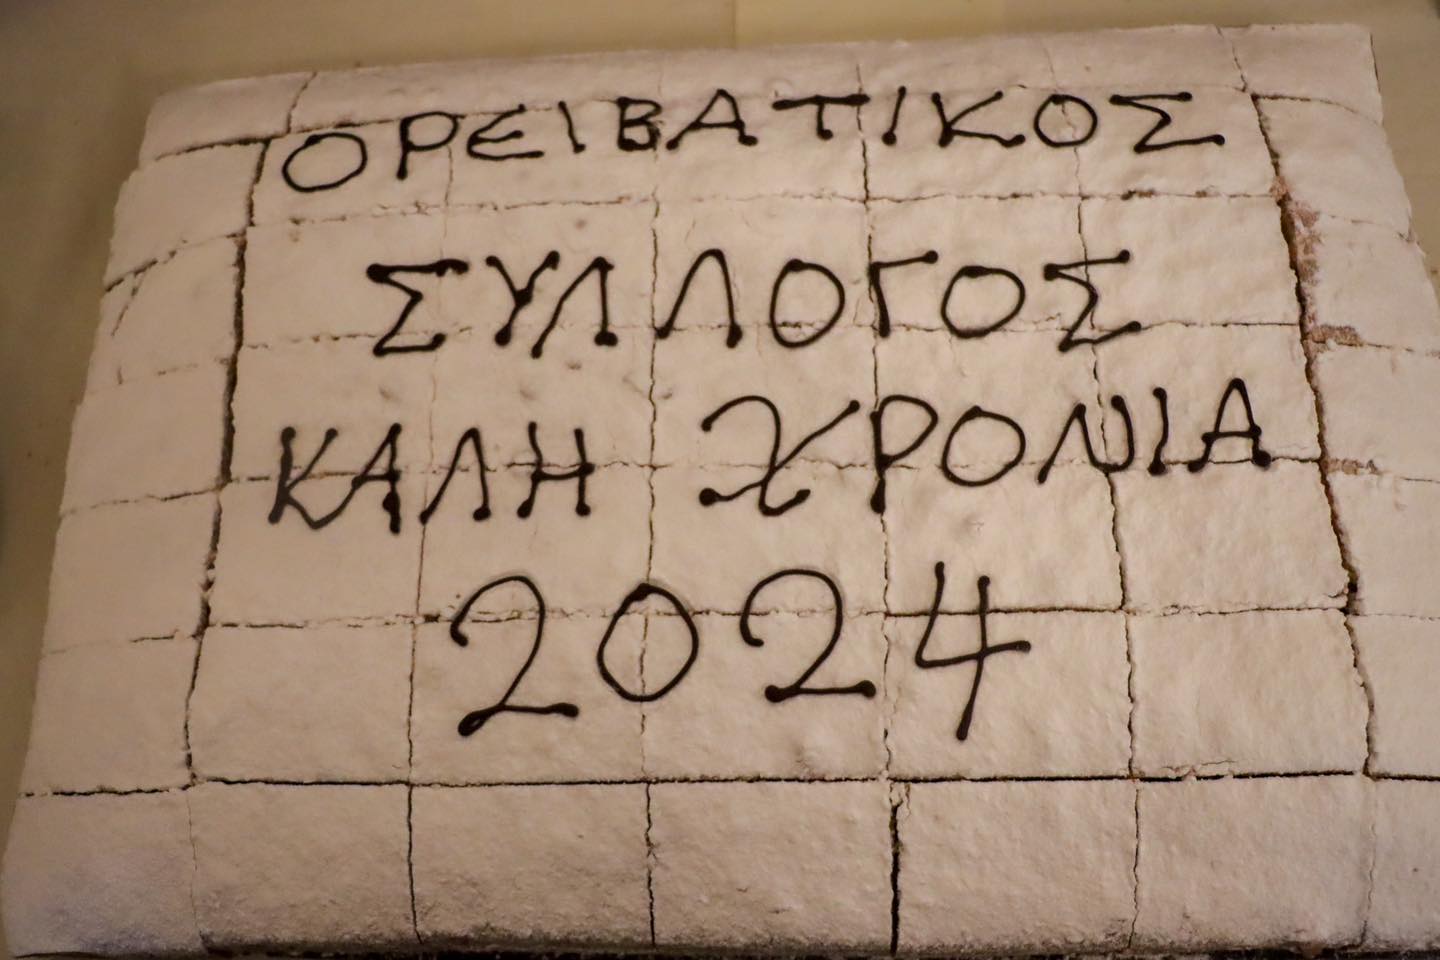 ΟΡΕΙΒΑΤΙΚΟΣ
ΣΥΛΛΟΓΟΣ
ΚΑΛΗ ΧΡΟΝΙΑ
2024